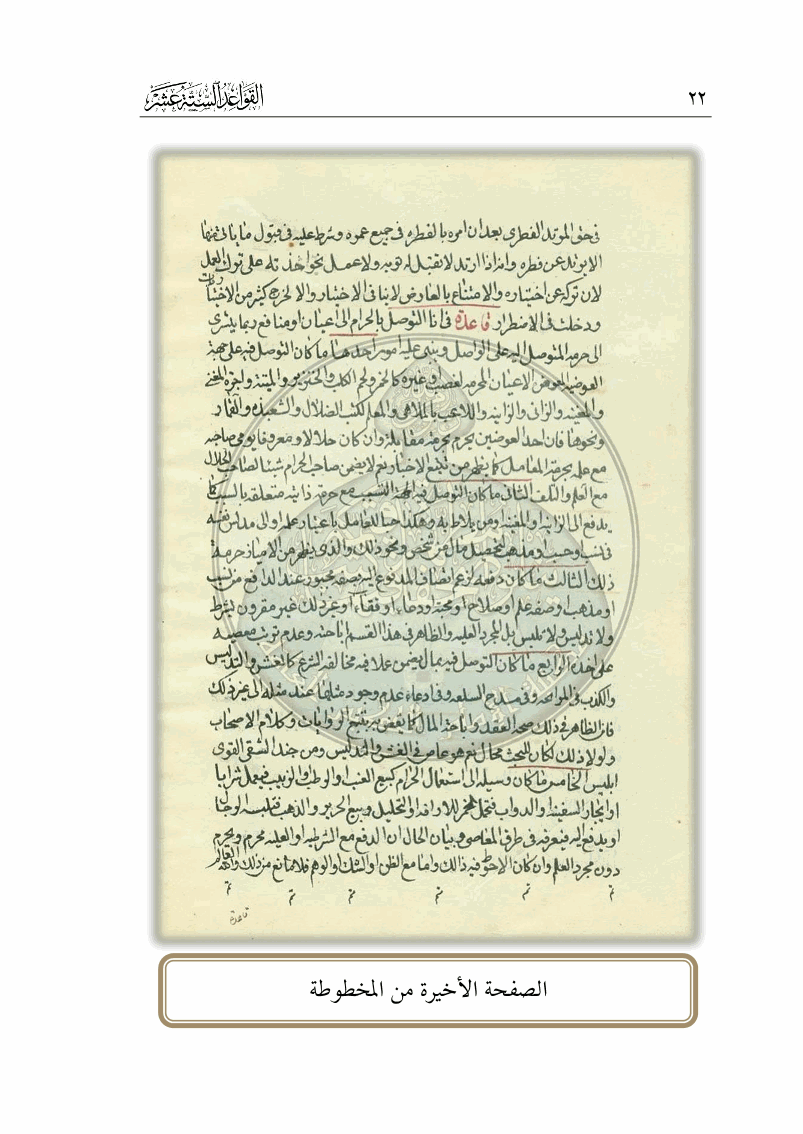 ٢٢
القَوَاعِدُ السِّتَّةَ عَشَر
في حق المرتد الفطري بعد ان امره بالفطره في جميع عمره وشرط عليه في قبول ما يأتي منها
الا يرتد عن فطره وانه اذا ارتد لا تقبل له توبه ولا عمل نحو اخذ ته على ترك العمل
لان تركه عن اختياره والامتناع بالعارض لا ينافي الاختيار والا لخرج كثير من الاختيا
ريات
ودخلت في الاضطرار قاعدة في انا التوصل بالحرام الى اعيان او منافع ربما يسري
الى حرمه المتوصل اليه على الواصل ويبنى عليه امور احدها ما كان التوصل فيه على جهة
العوضيه لعوض الاعيان المحرمه لغصب او غيره كالخمر ولحم الكلب والخنزير والميتة واجرة المغني
والمغنيه والزاني والزانيه واللاعب بالملاهي والمعلم لكتب الضلال والشعبذه والقمار
ونحوها فان احد العوضين يحرم بحرمة مقابله وان كان حلالا ومعروفا يوفي صاحبه
مع علمه بحرمة المقابل كما يظهر من تتبع الاخبار نعم لا يضمن صاحب الحرام شيئا لصاحب الحلال
مع العلم والتلف الثاني ما كان التوصل فيه لجهة التسبب مع حرمة ذاتيه متعلقه بالسبب كما
يدفع الى الزانيه والمغنيه ومن يلاط به وهكذا حبا للفاعل باعتبار عمله او الى مدلس نفسه
في نسب وحسب ومذهب لتحصيل مال من شخص ونحو ذلك والذي يظهر من الاخبار حرمة
ذلك الثالث ما كان دفعه لزعم اتصاف المدفوع اليه بصفه محبوبة عند الدافع من نسب
او مذهب او صفه علم او صلاح او محبة او دعاء او فقاهة او غير ذلك غير مقرون بشرط
ولا تدليس ولا تلبيس بل لمجرد العليه والظاهر في هذا القسم اباحته وعدم ترتب معصيه
على اخذه الرابع ما كان التوصل فيه بمال يضمن علاقه مخالفه الشرع كالغش والتدليس
والكذب في المرابحه وفي مدح السلعه وفي ادعاء عدم وجود مثلها عند مثله الى غير ذلك
فان الظاهر في ذلك صحه العقد واباحة المال كما يقضي به تتبع الروايات وكلام الاصحاب
ولولا ذلك لكان للبحث مجال نعم هو عاص في الغش والتدليس ومن جند الشقي القوي
ابليس الخامس ما كان وسيله الى استعمال الحرام كبيع العنب والرطب والزبيب فيعمل شرابا
او ايجار السفينه والدواب فتحمل الخمر للارافه او التحليل وبيع الحرير والذهب فتلبسه الرجال
او يدفع اليه فيصرفه في طرق المعاصي وبيان الحال ان الدفع مع الشرطيه او العليه محرم ويحرم
دون مجرد العلم وان كان الاحوط فيه ذالك واما مع الظن او الشك او الوهم فلا مانع من ذلك والله العالم
تم تم تم تم تم تم
قاعدة
الصفحة الأخيرة من المخطوطة